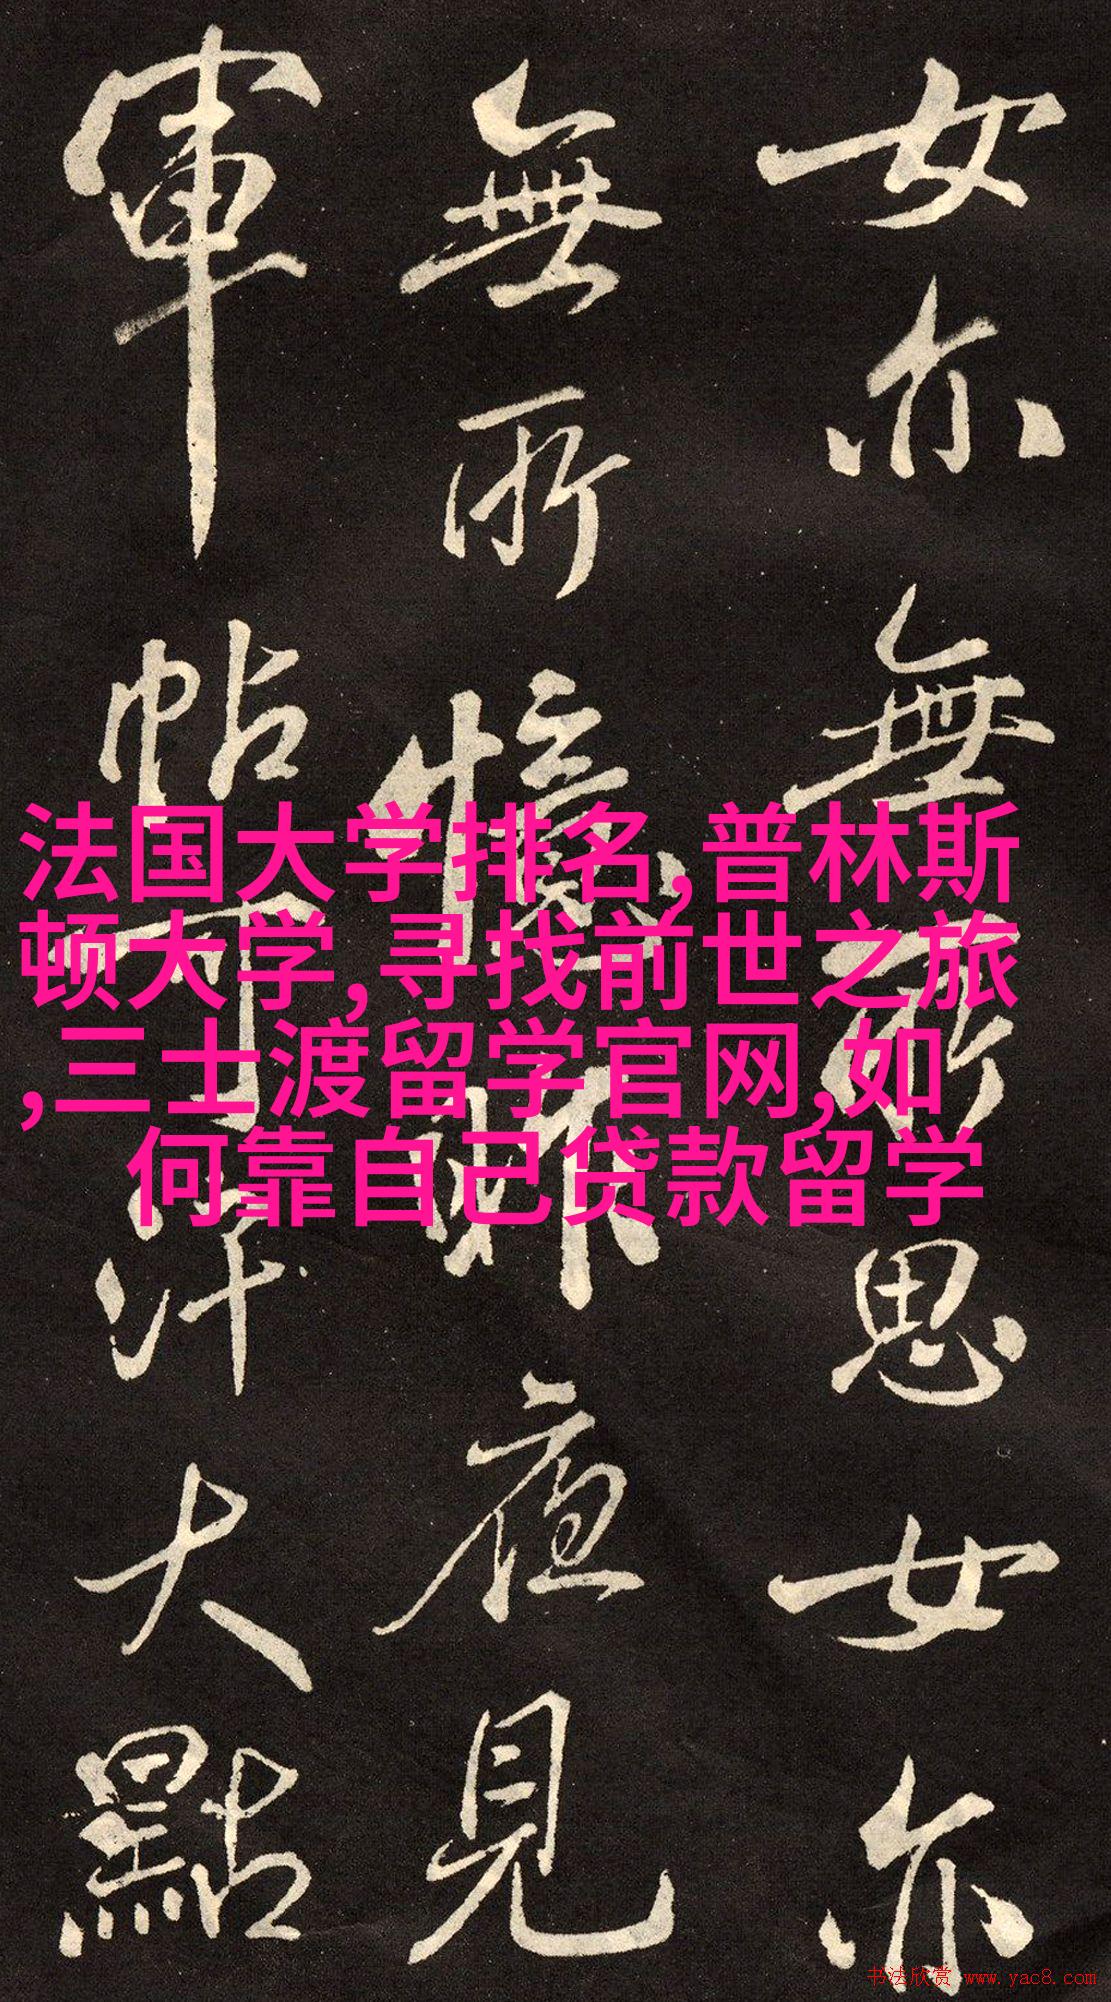 女亦無所思女亦
無所憶昨夜見
軍帖可汗大點
法国大学排名,普林斯
顿大学,寻找前世之旅
,三士渡留学官网,如
何靠自己贷款留学
书法欣赏 www.yac8.com